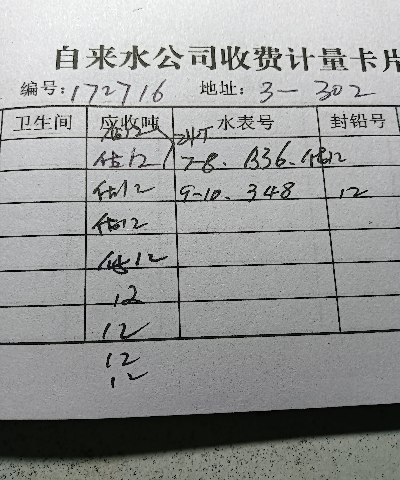 自来水公司收费计量卡片
编号:172716 地址:3-302
卫生间 应收吨 水表号 封铅号
估12 7-8. B36. 估12
估12 9-10. 348 12
估12
估12
12
12
12
12